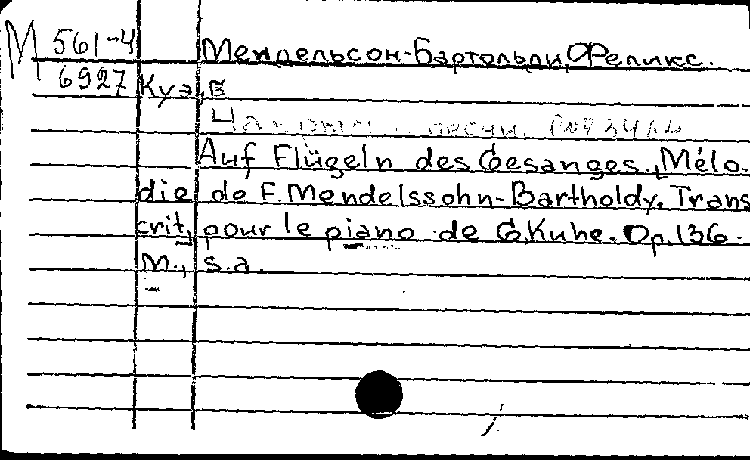 М 561-4 Мендельсон-Бартольди, Феликс.
6927 Куэ, Е
На крыльях песни.
Auf Flügeln des Gesanges. Mélo-
die de F. Mendelssohn-Bartholdy. Trans
crit, pour le piano de G. Kuhe. Op. 136.
М., s.a.